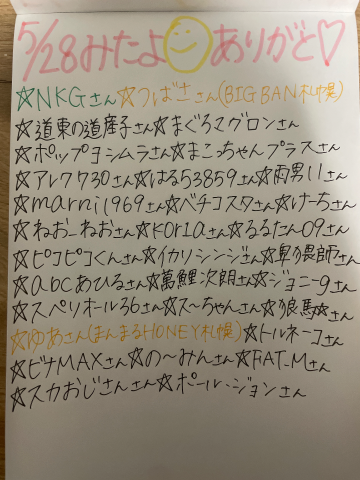 5/28みたよ ありがと♡
☆NKGさん☆つばささん(BIGBAN札幌)
☆道東の道産子さん☆まぐろマグロンさん
☆ポップヨシムラさん☆まこっちゃんプラスさん
☆アレク730さん☆はる53859さん☆雨男11さん
☆marni1969さん☆ベチコスタさん☆けーちさん
☆ねおーねおさん☆Koriaさん☆るるたん09さん
☆ピコピコくんさん☆イカリシンジさん☆卑猥師さん
☆abcあひるさん☆萬鯉次朗さん☆ジョニーgさん
☆スペリオール36さん☆ス〜ちゃんさん☆狼馬★さん
☆ゆあさん(まんまるHONEY札幌)☆トルネーコさん
☆ビナMAXさん☆の〜みんさん☆FAT_Mさん
☆スカおじさんさん☆ポール・ジョンさん